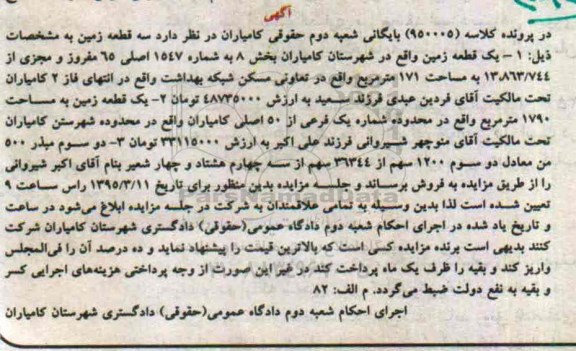 آگهی
در پرونده کلاسه (۹۵۰۰۰۵) بایگانی شعبه دوم حقوقی کامیاران در نظر دارد سه قطعه زمین به مشخصات
ذیل: ۱ – یک قطعه زمین واقع در شهرستان کامیاران بخش ۸ به شماره ۱۵۴۷ اصلی ۶۵ مفروز و مجزی از
۱۳،۸۶۳/۷۴۴ به مساحت ۱۷۱ مترمربع واقع در تعاونی مسکن شبکه بهداشت واقع در انتهای فاز ۲ کامیاران
تحت مالکیت آقای فردین عبدی فرزند سعید به ارزش ۴۸۷۳۵۰۰۰ تومان ۲- یک قطعه زمین به مساحت
۱۷۹۰ مترمربع واقع در محدوده شماره یک فرعی از ۵۰ اصلی کامیاران واقع در محدوده شهرستن کامیاران
تحت مالکیت آقای منوچهر شیروانی فرزند علی اکبر به ارزش ۳۳۱۱۵۰۰۰ تومان ۳- دو سوم میذر ۵۰۰
من معادل دو سوم ۱۲۰۰ سهم از ۳۶۳۴۴ سهم از سه چهارم هشتاد و چهار شعیر بنام آقای اکبر شیروانی
را از طریق مزایده به فروش برساند و جلسه مزایده بدین منظور برای تاریخ ۱۳۹۵/۳/۱۱ راس ساعت ۹
تعیین شده است لذا بدین وسیله به تمامی علاقمندان به شرکت در جلسه مزایده ابلاغ می‌شود در ساعت
و تاریخ یاد شده در اجرای احکام شعبه دوم دادگاه عمومی(حقوقی) دادگستری شهرستان کامیاران شرکت
کنند بدیهی است برنده مزایده کسی است که بالاترین قیمت را پیشنهاد نماید و ده درصد آن را فی‌المجلس
واریز کند و بقیه را ظرف یک ماه پرداخت کند در غیر این صورت از وجه پرداختی هزینه‌های اجرایی کسر
و بقیه به نفع دولت ضبط می‌گردد. م الف: ۸۲
اجرای احکام شعبه دوم دادگاه عمومی(حقوقی) دادگستری شهرستان کامیاران